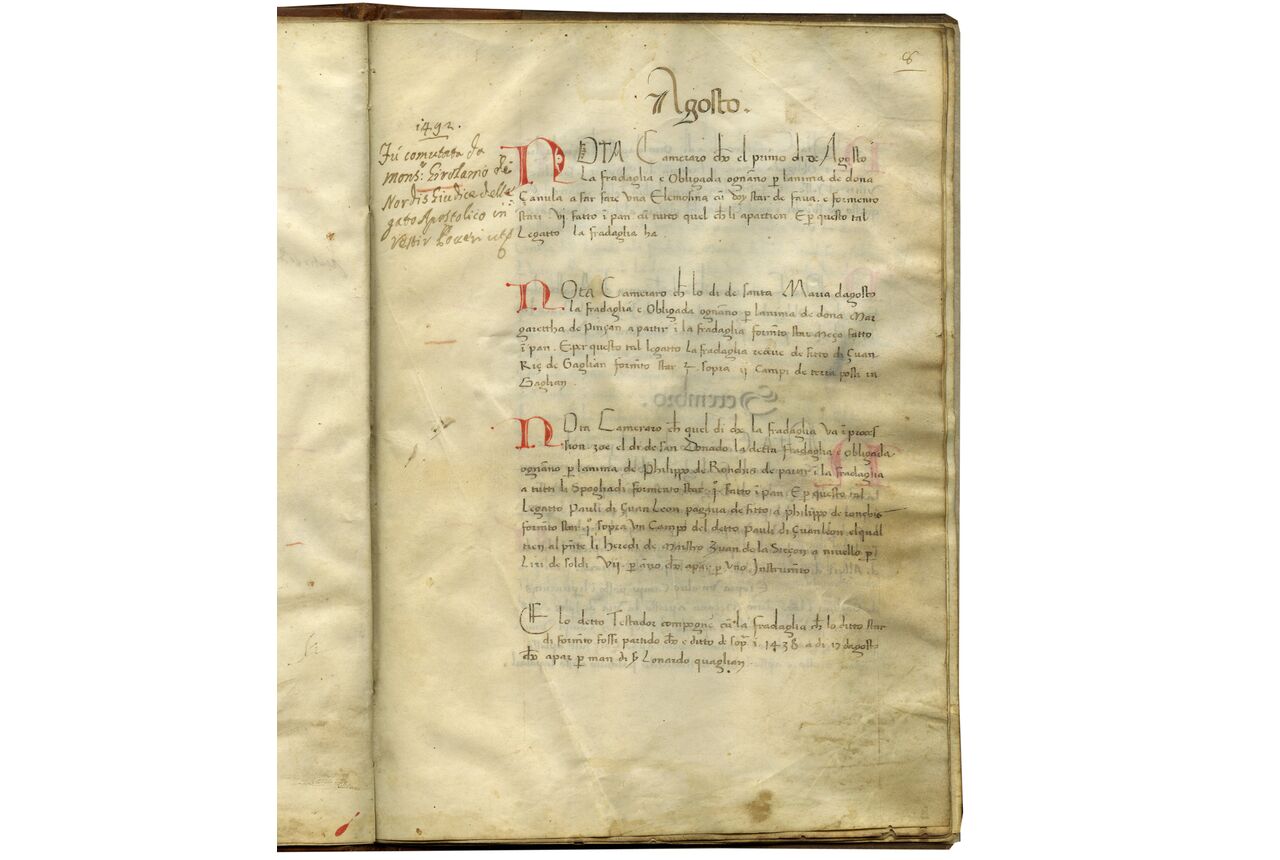 8
Agosto.
1492.
Fù comutata da
mons.r Girolamo de
Nordis Giudice dele
gato Apostolico in
vestir Poveri
NOTA Cameraro chè el primo di de Agosto
La fradaglia e Obligada ognano p lanima de dona
Canula a far fare vna Elemosina cū doy star de faua. e formento
stari vi fatto ī pan cū tutto quel ch li apartien E p questo tal
Legatto la fradaglia ha.
NOta Cameraro ch lo di de santa Maria dagosto
la fradaglia e Obligada ognano p lanima de dona Mar
garettha de Pinçan a partir ī la fradaglia formto star meço fatto
ī pan. E per questo tal legatto la fradaglia receue de fitto di Çuan
Riç de Gaglian formto star sopra ij Campi de terra posti in
Gaglian.
NOta Cameraro ch quel di ch la fradaglia va ī proces
sion. zoe el di de san Donado la detta fradaglia e obligada
ognano p lanima de Philippo de Ronchis de partir ī la fradaglia
a tutti li Spogliadi formento star j. fatto ī pan. E p questo tal
Legatto Pauli di Çuan Leon pagaua de fitto a Philippo de ronchis
formto star j. sopra vn Campo del detto Pauli di Çuan leon elqual
tien al pnte li heredi de Maistro Zuan de la a niuello p
Liri de soldi Vij. p ano ch apar p vno Instrumto
E lo detto Testador compogne cū la fradaglia ch lo ditto star
di formto fossi partido ch e ditto de sop. ī 1438 a di 17 dagosto
ch apar p man di s Lonardo quaglian.
Setembrio.